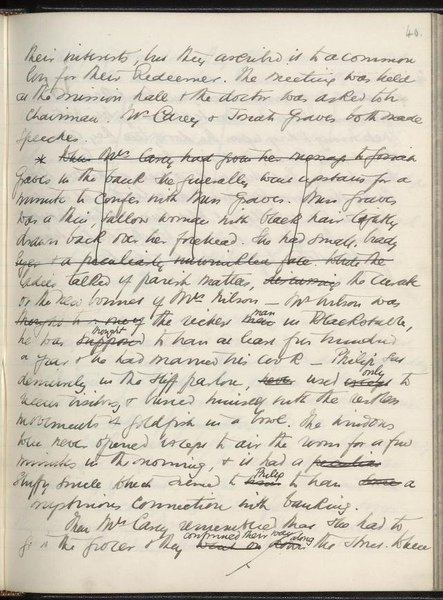 40.
their interests, but they ascribed it to a common
love for their Redeemer. The meeting was held
in the mission hall & the doctor was asked to be
Chairman. Mr Carey & Josiah Graves both made
speeches.
* When Mrs Carey had given her message to Josiah
Graves in the bank she generally went upstairs for a
minute to confer with Miss Graves. Miss Graves
was a thin, sallow woman with black hair tightly
drawn back over her forehead. She had small, beady
eyes & a peculiarly while the
ladies talked of parish matters, discussing the curate
or the new bonnet of Mrs Wilson — Mr Wilson was
thought to the richest man men in Blackstable,
he was thought supposed to have at least five hundred
a year & he had married his cook — Philip sat
demurely in the stiff parlour, never used only except to
receive visitors, & busied himself with the restless
movements of goldfish in a bowl. The windows
were never opened except to air the room for a few
minutes in the morning, & it had a peculiar
stuffy smell which seemed to Philip to have a
mysterious connection with banking.
Then Mrs Carey remembered that she had to
go to the grocer & they continued their way along went on down the street. When